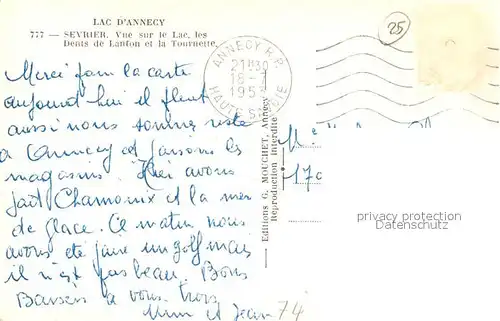 LAC D'ANNECY
777 — SEVRIER. Vue sur le Lac, les
Dents de Lanfon et la Tournette.
25
ANNECY R.P.
21H30
18-
195
HAUTE-SAVOIE
Merci pour la carte
aujourd'hui il pleut
aussi nous sommes resté
a Annecy et faisons les
magasins. Hier avons
fait Chamonix et la mer
de glace. Ce matin nous
avons été faire un golf mais
il n'est pas beau. Bons
Baisers a vous trois
Mim et Jean 74
Editions G. MOUCHET, Annecy
Reproduction interdite
170
privacy protection
Datenschutz